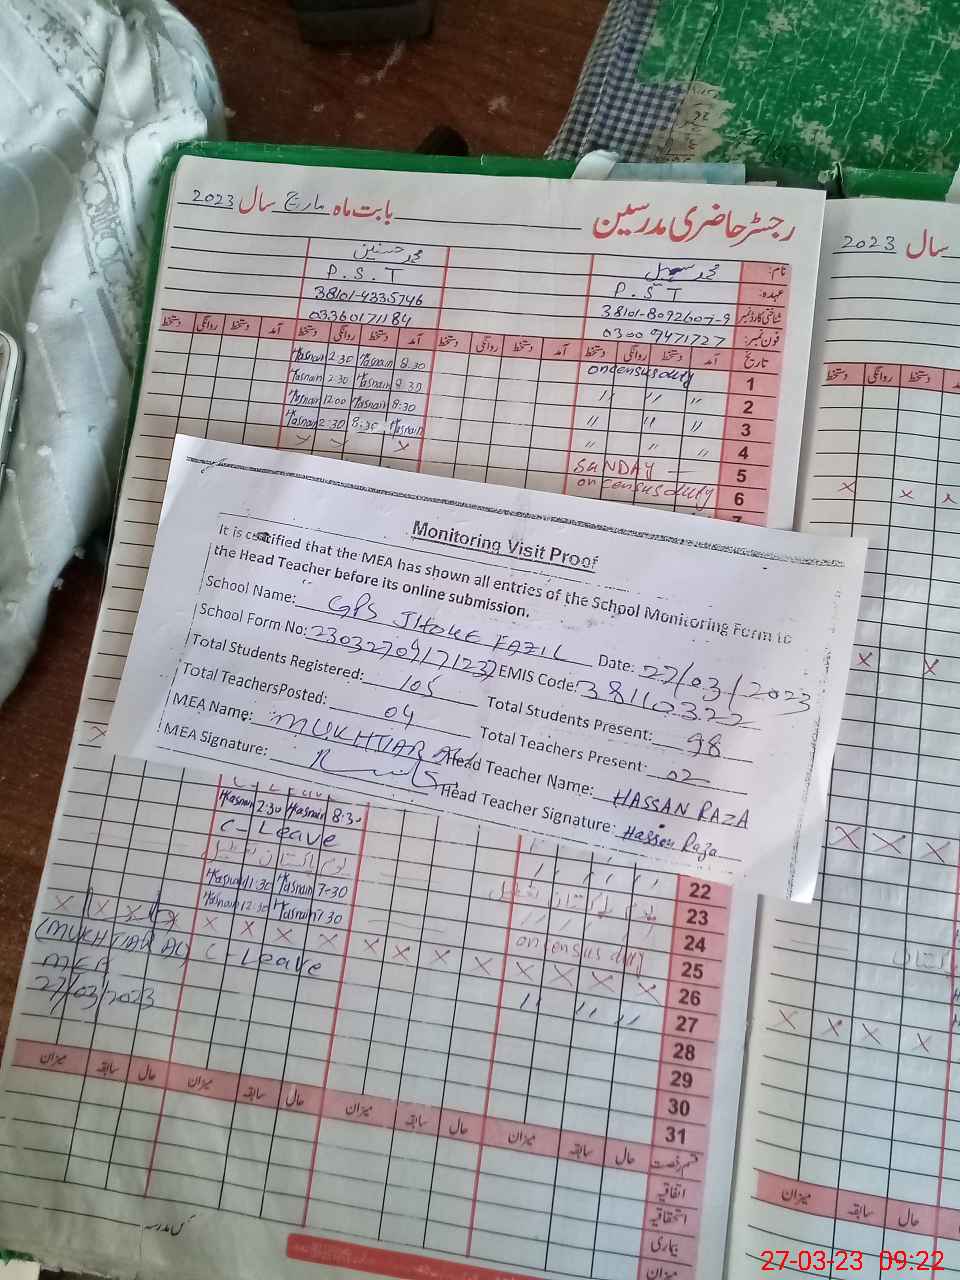 رجسٹر حاضری مدرسین بابت ماہ مارچ سال 2023
2023 سال
نام: محمد سہیل محمد حسنین
عہدہ: P.S.T P.S.T
شناختی کارڈ نمبر 38101-8092607-9 38101-4335746
فون نمبر: 0300 9471727 03360171184
تاریخ آمد دستخط روانگی دستخط آمد دستخط روانگی دستخط آمد دستخط روانگی دستخط
دستخط روانگی دستخط
1 on census duty Hasnain 2:30 Hasnain 8:30
2 " " " Hasnain 2:30 Hasnain 8:30
3 " " " Hasnain 12:00 Hasnain 8:30
4 " " " Hasnain 2:30 8:30 Hasnain
5 SUNDAY
6 on census duty
7
Monitoring Visit Proof
It is certified that the MEA has shown all entries of the School Monitoring Form to
the Head Teacher before its online submission.
School Name: GPS JHOKE FAZIL Date: 27/03/2023
School Form No: 23032709171237 EMIS Code: 38110322
Total Students Registered: 105 Total Students Present: 98
Total Teachers Posted: 04 Total Teachers Present: 02
MEA Name: MUKHTIAR ALI Head Teacher Name: HASSAN RAZA
MEA Signature: Head Teacher Signature: Hassan Raza
Hasnain 2:30 Hasnain 8:30
22 " " " " C-Leave
23 یوم پاکستان تعطیل یوم پاکستان تعطیل
24 " " " Hasnain 11:30 Hasnain 7-30
25 on census duty Hasnain 12:30 Hasnain 7 30
26 X X X X X X X X X X X X X X X X
27 " " " C-Leave
(MUKHTIAR ALI)
MEA
27/03/2023
28
29
30
31
قسم رخصت حال سابقہ میزان حال سابقہ میزان حال سابقہ میزان حال سابقہ میزان
حال سابقہ میزان
اتفاقیہ
استحقاقیہ
بیماری
میزان
27-03-23 09:22